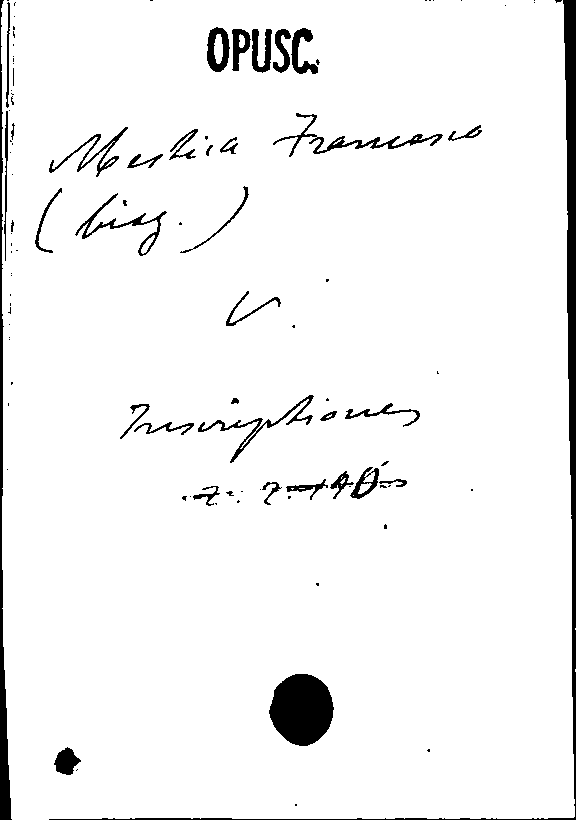 OPUSC.
Mestica Francesco
(biog.)
V.
Inscriptiones